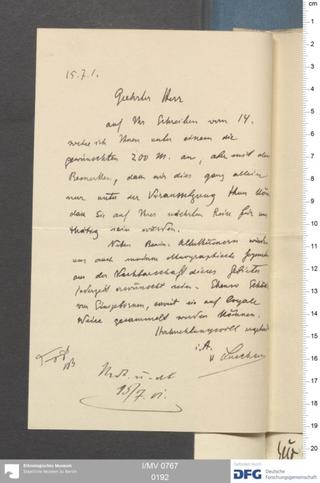 15.7.1.
Geehrter Herr
auf Ihr Schreiben vom 14.
weise ich Ihnen unter einem die
gewünschten 200 M. an, aber mit dem
Bemerken, dass wir dies ganz allein
nur unter der Voraussetzung thun
dass Sie auf Ihrer nächsten Reise für uns
thätig sein werden.
Neben Benin-Alterthümern würden
uns auch moderne ethnographische
aus der Nachbarschaft dieses Gebietes
jederzeit erwünscht sein. Ebenso
von Eingeborenen, soweit sie auf loyale
Weise gesammelt werden können.
Hochachtungsvoll ergebenst
i. A.
v Luschan
15/7. 01.
cm
1
2
3
4
5
6
7
8
9
10
11
12
13
14
15
16
17
18
19
20
Ethnologisches Museum
Staatliche Museen zu Berlin
I/MV 0767
0192
Gefördert durch
DFG Deutsche
Forschungsgemeinschaft